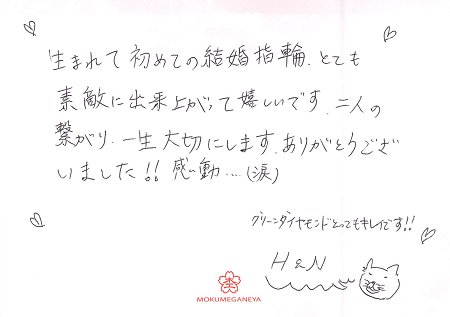 生まれて初めての結婚指輪、とても
素敵に出来上がって嬉しいです。二人の
繋がり、一生大切にします。ありがとうござ
いました!! 感動....(涙)
グリーンダイヤモンドとってもキレイです!!
H&N
MOKUMEGANEYA